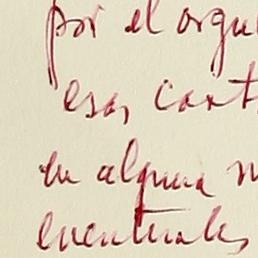 por el orgu
esas cart
en alguna m
eventuales